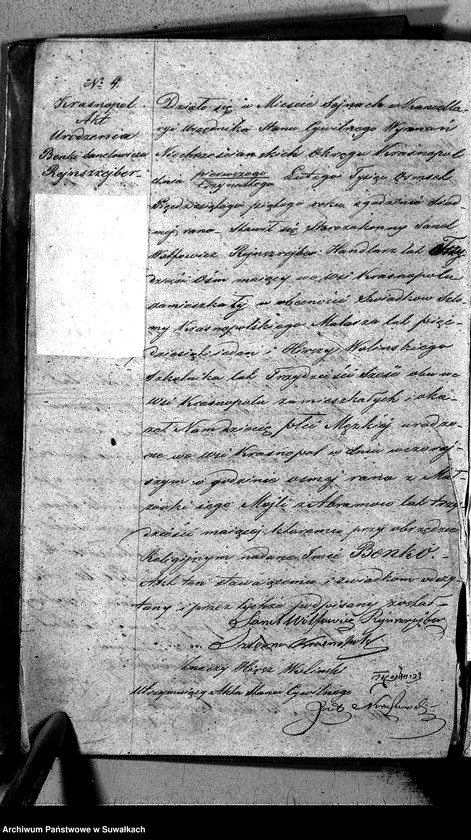 № 4.
Krasnopol
Akt
Urodzenia
Benka Sendlowicza
Rejnszrejber
Działo się w Mieście Sejnach w Kancella
ryi Urzędnika Stanu Cywilnego Wyznań
Niechrześcianskich Okręgu Krasnopol
dnia pierwszego Lutego Tysiąc Ośmset
trzynastego
Pięćdziesiątego piątego roku o godzinie
rano. Stawił się Starozakonny Send
Wolfowicz Rejnszrejber Handlarz lat Trzy
dzieści Ośm maiący we Wsi Krasnopolu
zamieszkały w obecności Świadków
Krasnopolskiego lat pięć
dziesiąt ieden i Hirszy Wolinskiego
Szkolnika lat Trzydzieści Sześć obu we
Wsi Krasnopolu zamieszkałych i oka
zał Nam dziecię płci Męzkiej urodzo
ne we wsi Krasnopol w dniu wczoraj
szym o godzinie osmej rano z Mał
żonki iego Mejli z Abramow lat trzy
dzieści maiącej któremu przy obrzędzie
Religijnym nadane Imię Benko.
Akt ten stawaiącemu i świadkom odczy
tany i przez tychże podpisany został
Send Wolfowicz Rejnszrejber
Krasnopolski
Hirsz Wolinski
Utrzymuiący Akta Stanu Cywilnego
Archiwum Państwowe w Suwałkach